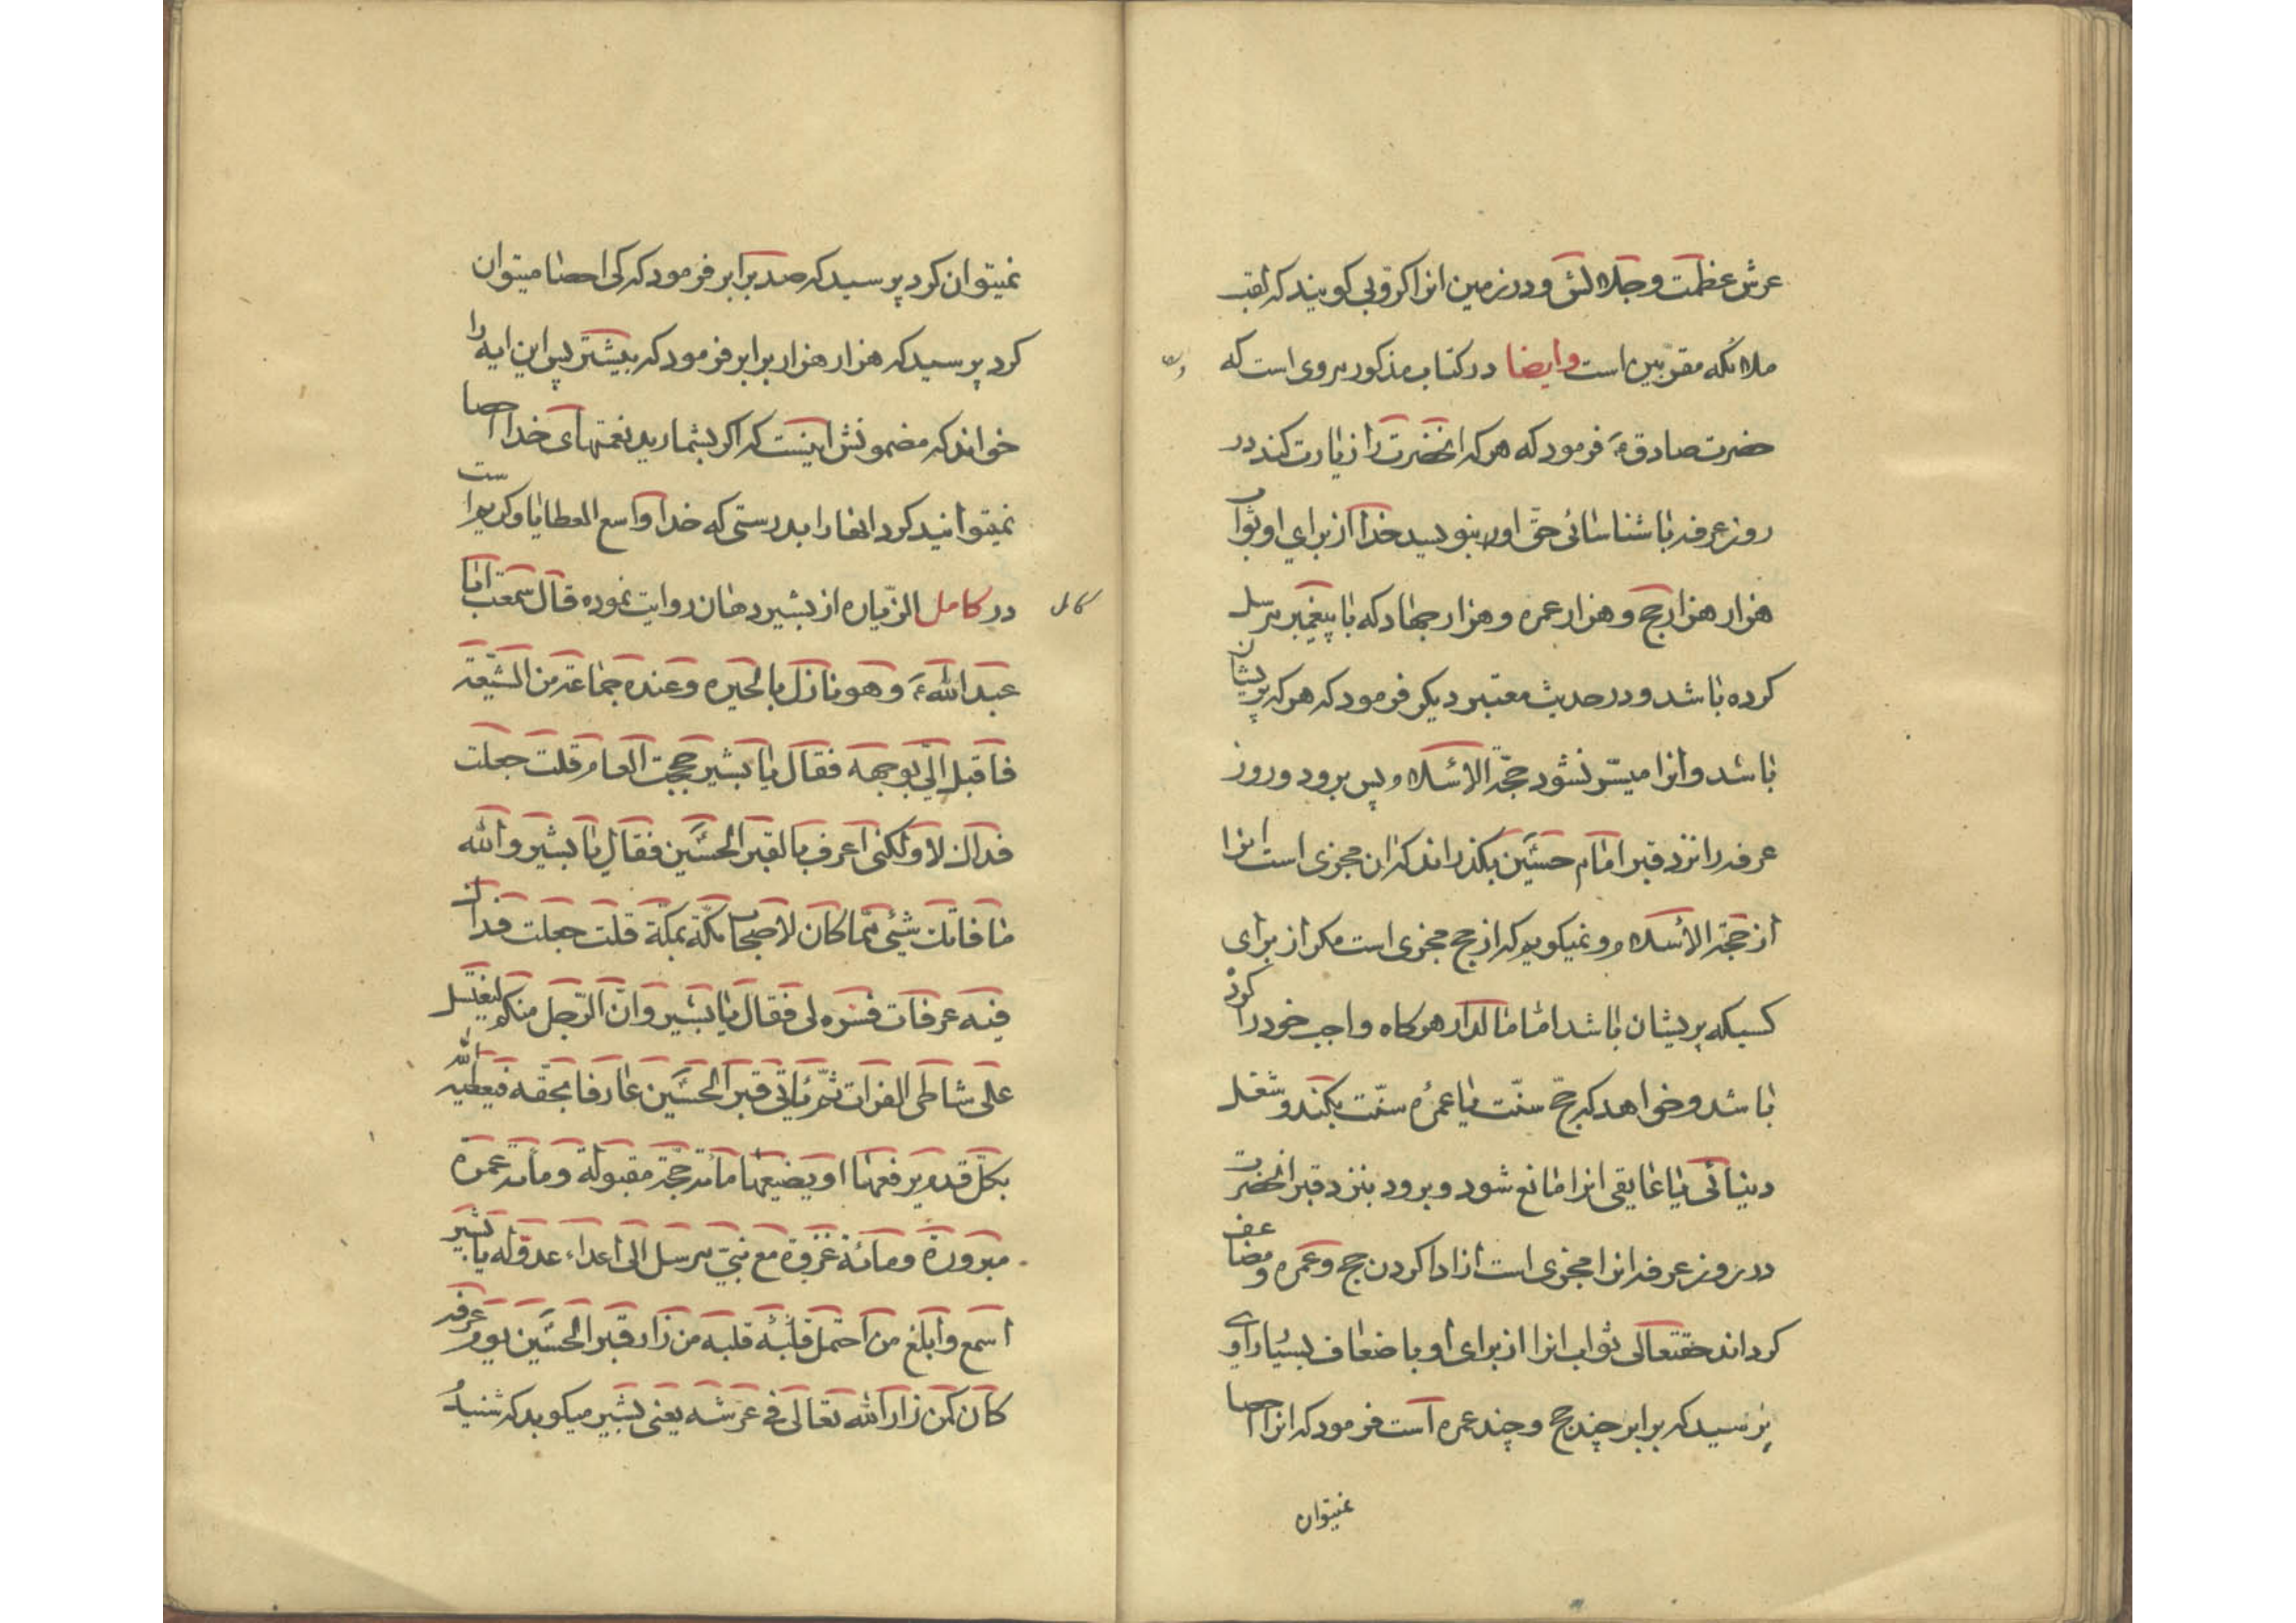 عرش عظمت و جلالش و در زمین انرا کرّوبی کویند که لقب
ملائکه مقربین است و ایضا در کتاب مذکور مروی است که
حضرت صادق ع فرمود که هر که انحضرت را زیارت کند در
روز عرفه با شناسائی حق او بنویسد خدا از برای او ثواب
هزار هزار حج و هزار عمره و هزار جهاد که با پیغمبر مرسل
کرده باشد و در حدیث معتبر دیکر فرمود که هر که پریشان
باشد و انرا میسّر نشود حجّة الاسلام پس برود و روز
عرفه را نزد قبر امام حسین بکذراند که ان مجزی است انرا
از حجّة الاسلام و نمیکویم که از حج مجزی است مکر از برای
کسیکه پریشان باشد امّا مالدار هرکاه واجب خود را کرده
باشد و خواهد که حجّ سنّت یا عمرهٔ سنّت بکند و شغل
دنیائی یا عایقی انرا مانع شود و برود بنزد قبر انحضرت
در روز عرفه انرا مجزی است از ادا کردن حج و عمره و مضاعف
کرداند حقتعالی ثواب انرا از برای او باضعاف بسیار راوی
پرسید که برابر چند حج و چند عمره است فرمود که انرا احصا
نمیتوان
نمیتوان کرد پرسید که صد برابر فرمود که کی احصا میتوان
کرد پرسید که هزار هزار برابر فرمود که بیشتر پس این ایه را
خواند که مضمونش اینست که اکر بشمارید نعمتهای خدا احصا
نمیتوانید کرد انها را بدرستی که خدا واسع العطایا و کریم است
کامل
در کامل الزّیاره از بشیر دهان روایت نموده قال سمعت ابا
عبد الله ع و هو نازل بالحیره و عنده جماعة من الشّیعة
فاقبل الیّ بوجهه فقال یا بشیر حججت العام قلت جعلت
فداک لا و لکنی اعرف بالقبر الحسین فقال یا بشیر و الله
ما فاتک شیئی ممّا کان لاصحاب مکّة بمکّة قلت جعلت فداک
فیه عرفات فسره لی فقال یا بشیر و انّ الرّجل منکم لیغتسل
علی شاطی الفرات ثمّ یاتی قبر الحسین عارفا بحقّه فیعطیه الله
بکلّ قدم یرفعها او یضعها مائة حجّة مقبولة و مائة عمرة
مبرورة و مائة غزوة مع نبیّ مرسل الی اعداء عدوّ له یا بشیر
اسمع و ابلغ من احتمل قلبُه قلبه من زار قبر الحسین یوم عرفه
کان کمن زار الله تعالی فی عرشه یعنی بشیر میکوید که شنیدم